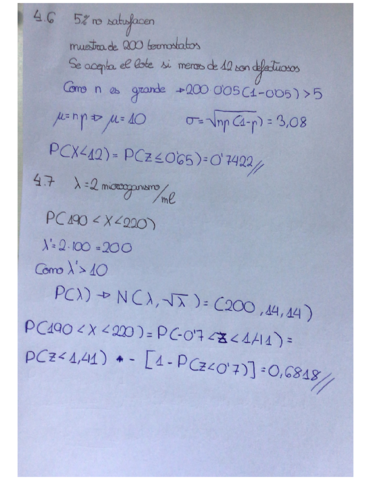 4.6 5% no satisfacen
muestra de 200 termostatos
Se acepta el lote si menos de 12 son defectuosos
Como n es grande → 200·0'05(1-0'05) > 5
μ=np → μ=10 σ=√np(1-p) = 3,08
P(X<12) = P(Z≤0'65) = 0'7422//
4.7 λ=2 microorganismo/ml
P(190 < X < 220)
λ'=2·100=200
Como λ'>10
P(λ) → N(λ,√λ) = (200,14,14)
P(190 < X < 220) = P(-0'7 < Z < 1,41) =
P(Z<1,41) - [1-P(Z<0'7)] = 0,6818//